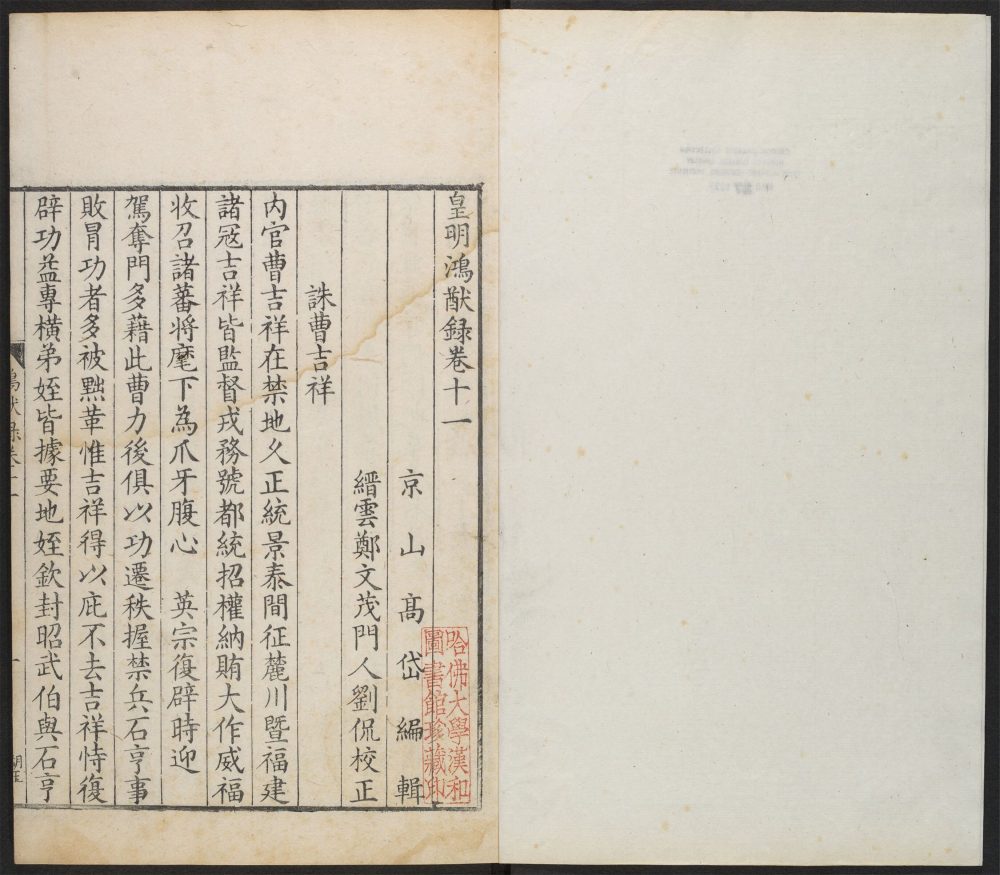 皇明鴻猷録卷十一
京山高岱編輯
縉雲鄭文茂門人劉侃校正
誅曹吉祥
内官曹吉祥在禁地乆正統景泰間征麓川暨福建
諸冦吉祥皆監督戎務號都統招權納賄大作威福
收召諸蕃将麾下為爪牙腹心　英宗復辟時迎
駕奪門多藉此曹力後俱以功遷秩握禁兵石亨事
敗冐功者多被黜革惟吉祥得以庇不去吉祥恃復
辟功益專橫弟姪皆據要地姪欽封昭武伯與石亨
哈佛大學漢和
圖書館珍藏印